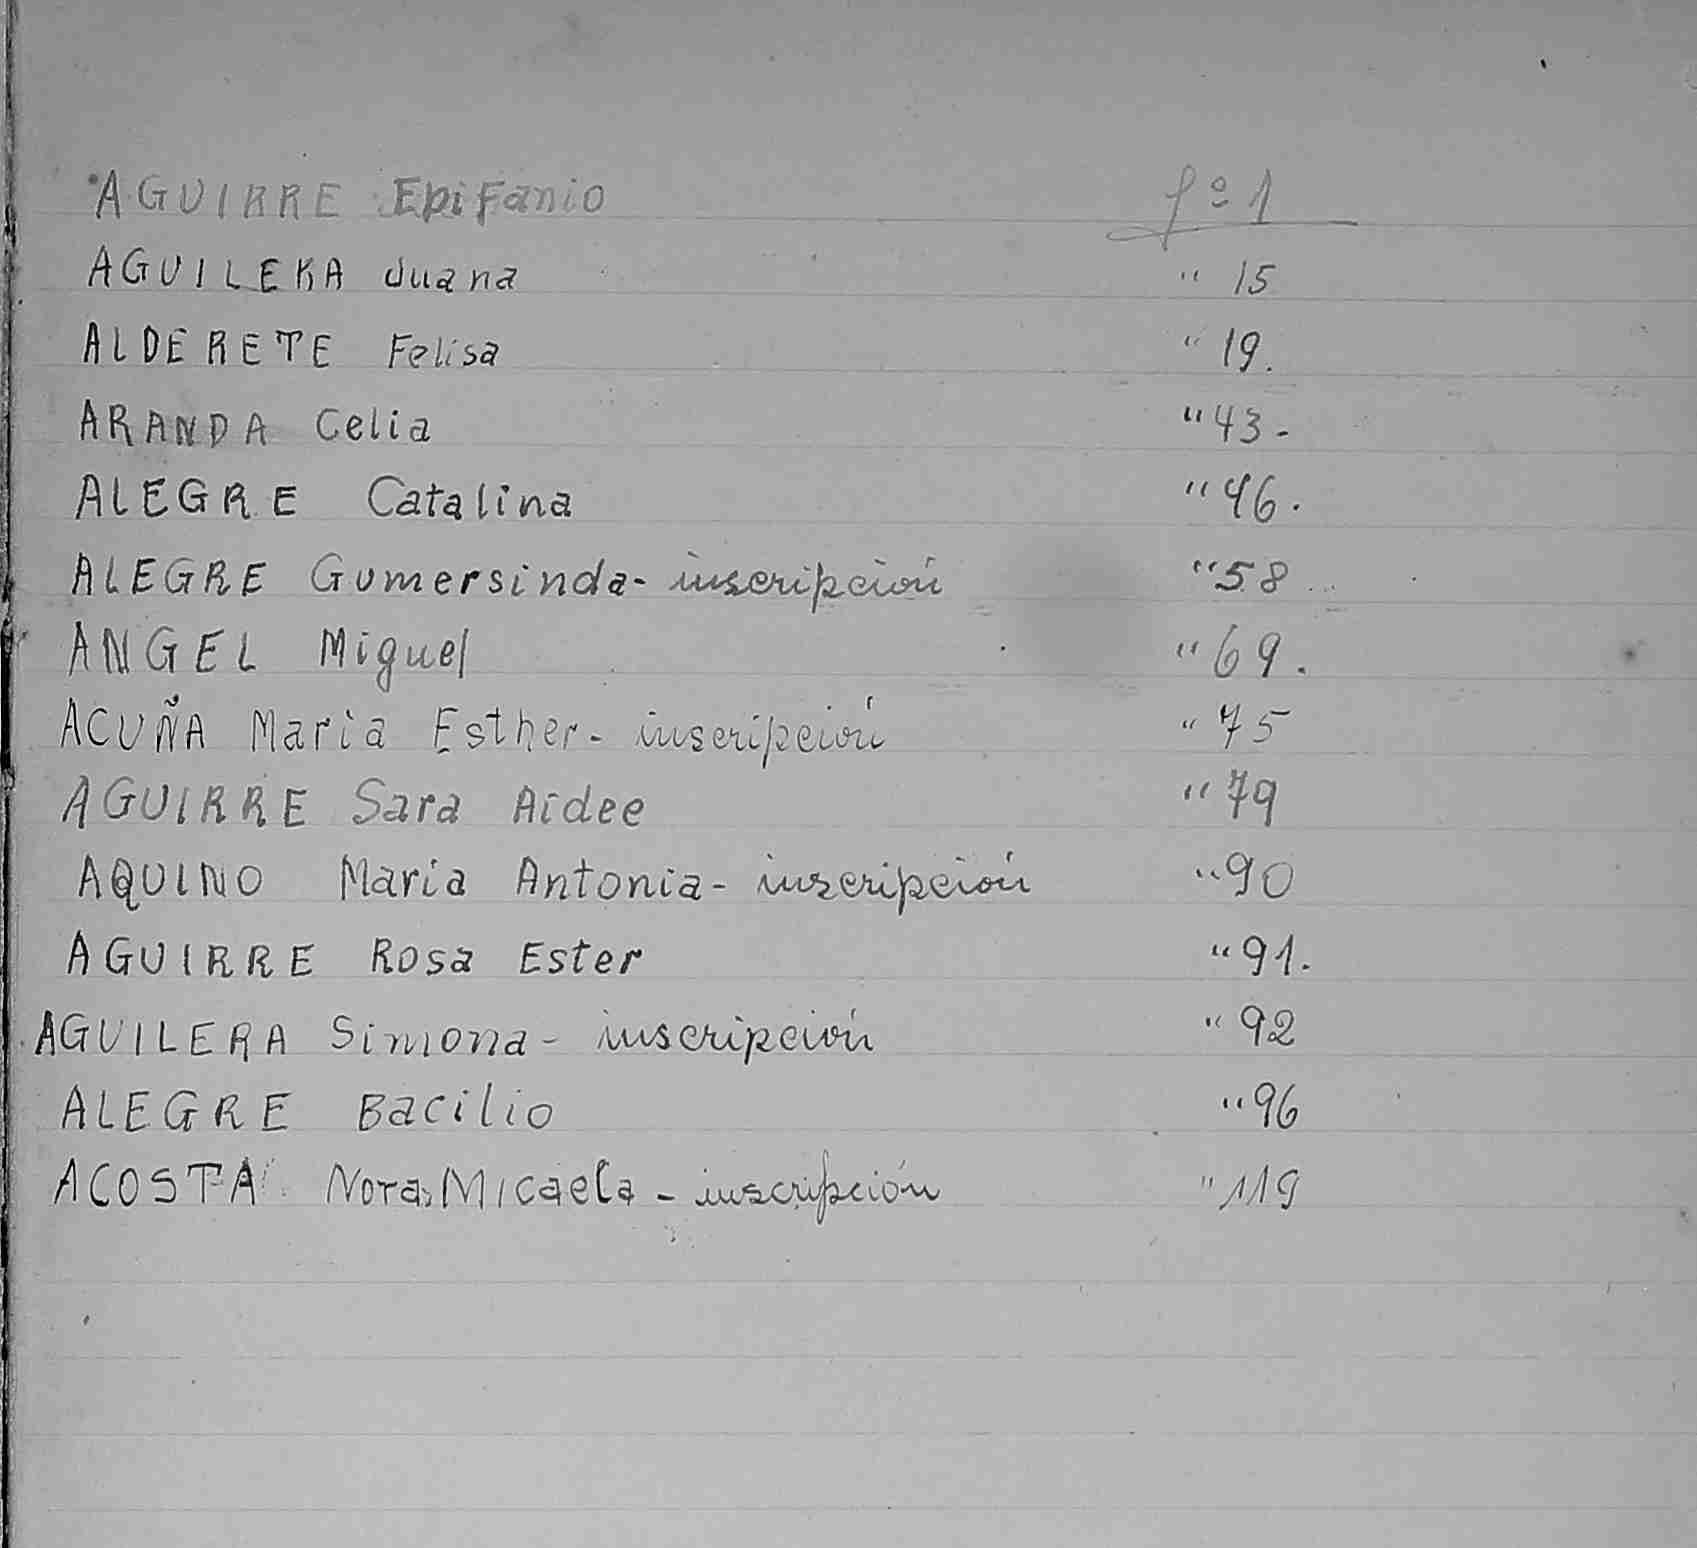 AGUIRRE Epifanio fº 1
AGUILERA Juana " 15
ALDERETE Felisa " 19.
ARANDA Celia " 43-
ALEGRE Catalina " 46.
ALEGRE Gumersinda- inscripción " 58
ANGEL Miguel " 69.
ACUÑA Maria Esther- inscripción " 75
AGUIRRE Sara Aidee " 79
AQUINO Maria Antonia- inscripción " 90
AGUIRRE Rosa Ester " 91.
AGUILERA Simona- inscripción " 92
ALEGRE Bacilio " 96
ACOSTA Nora Micaela - inscripción " 119